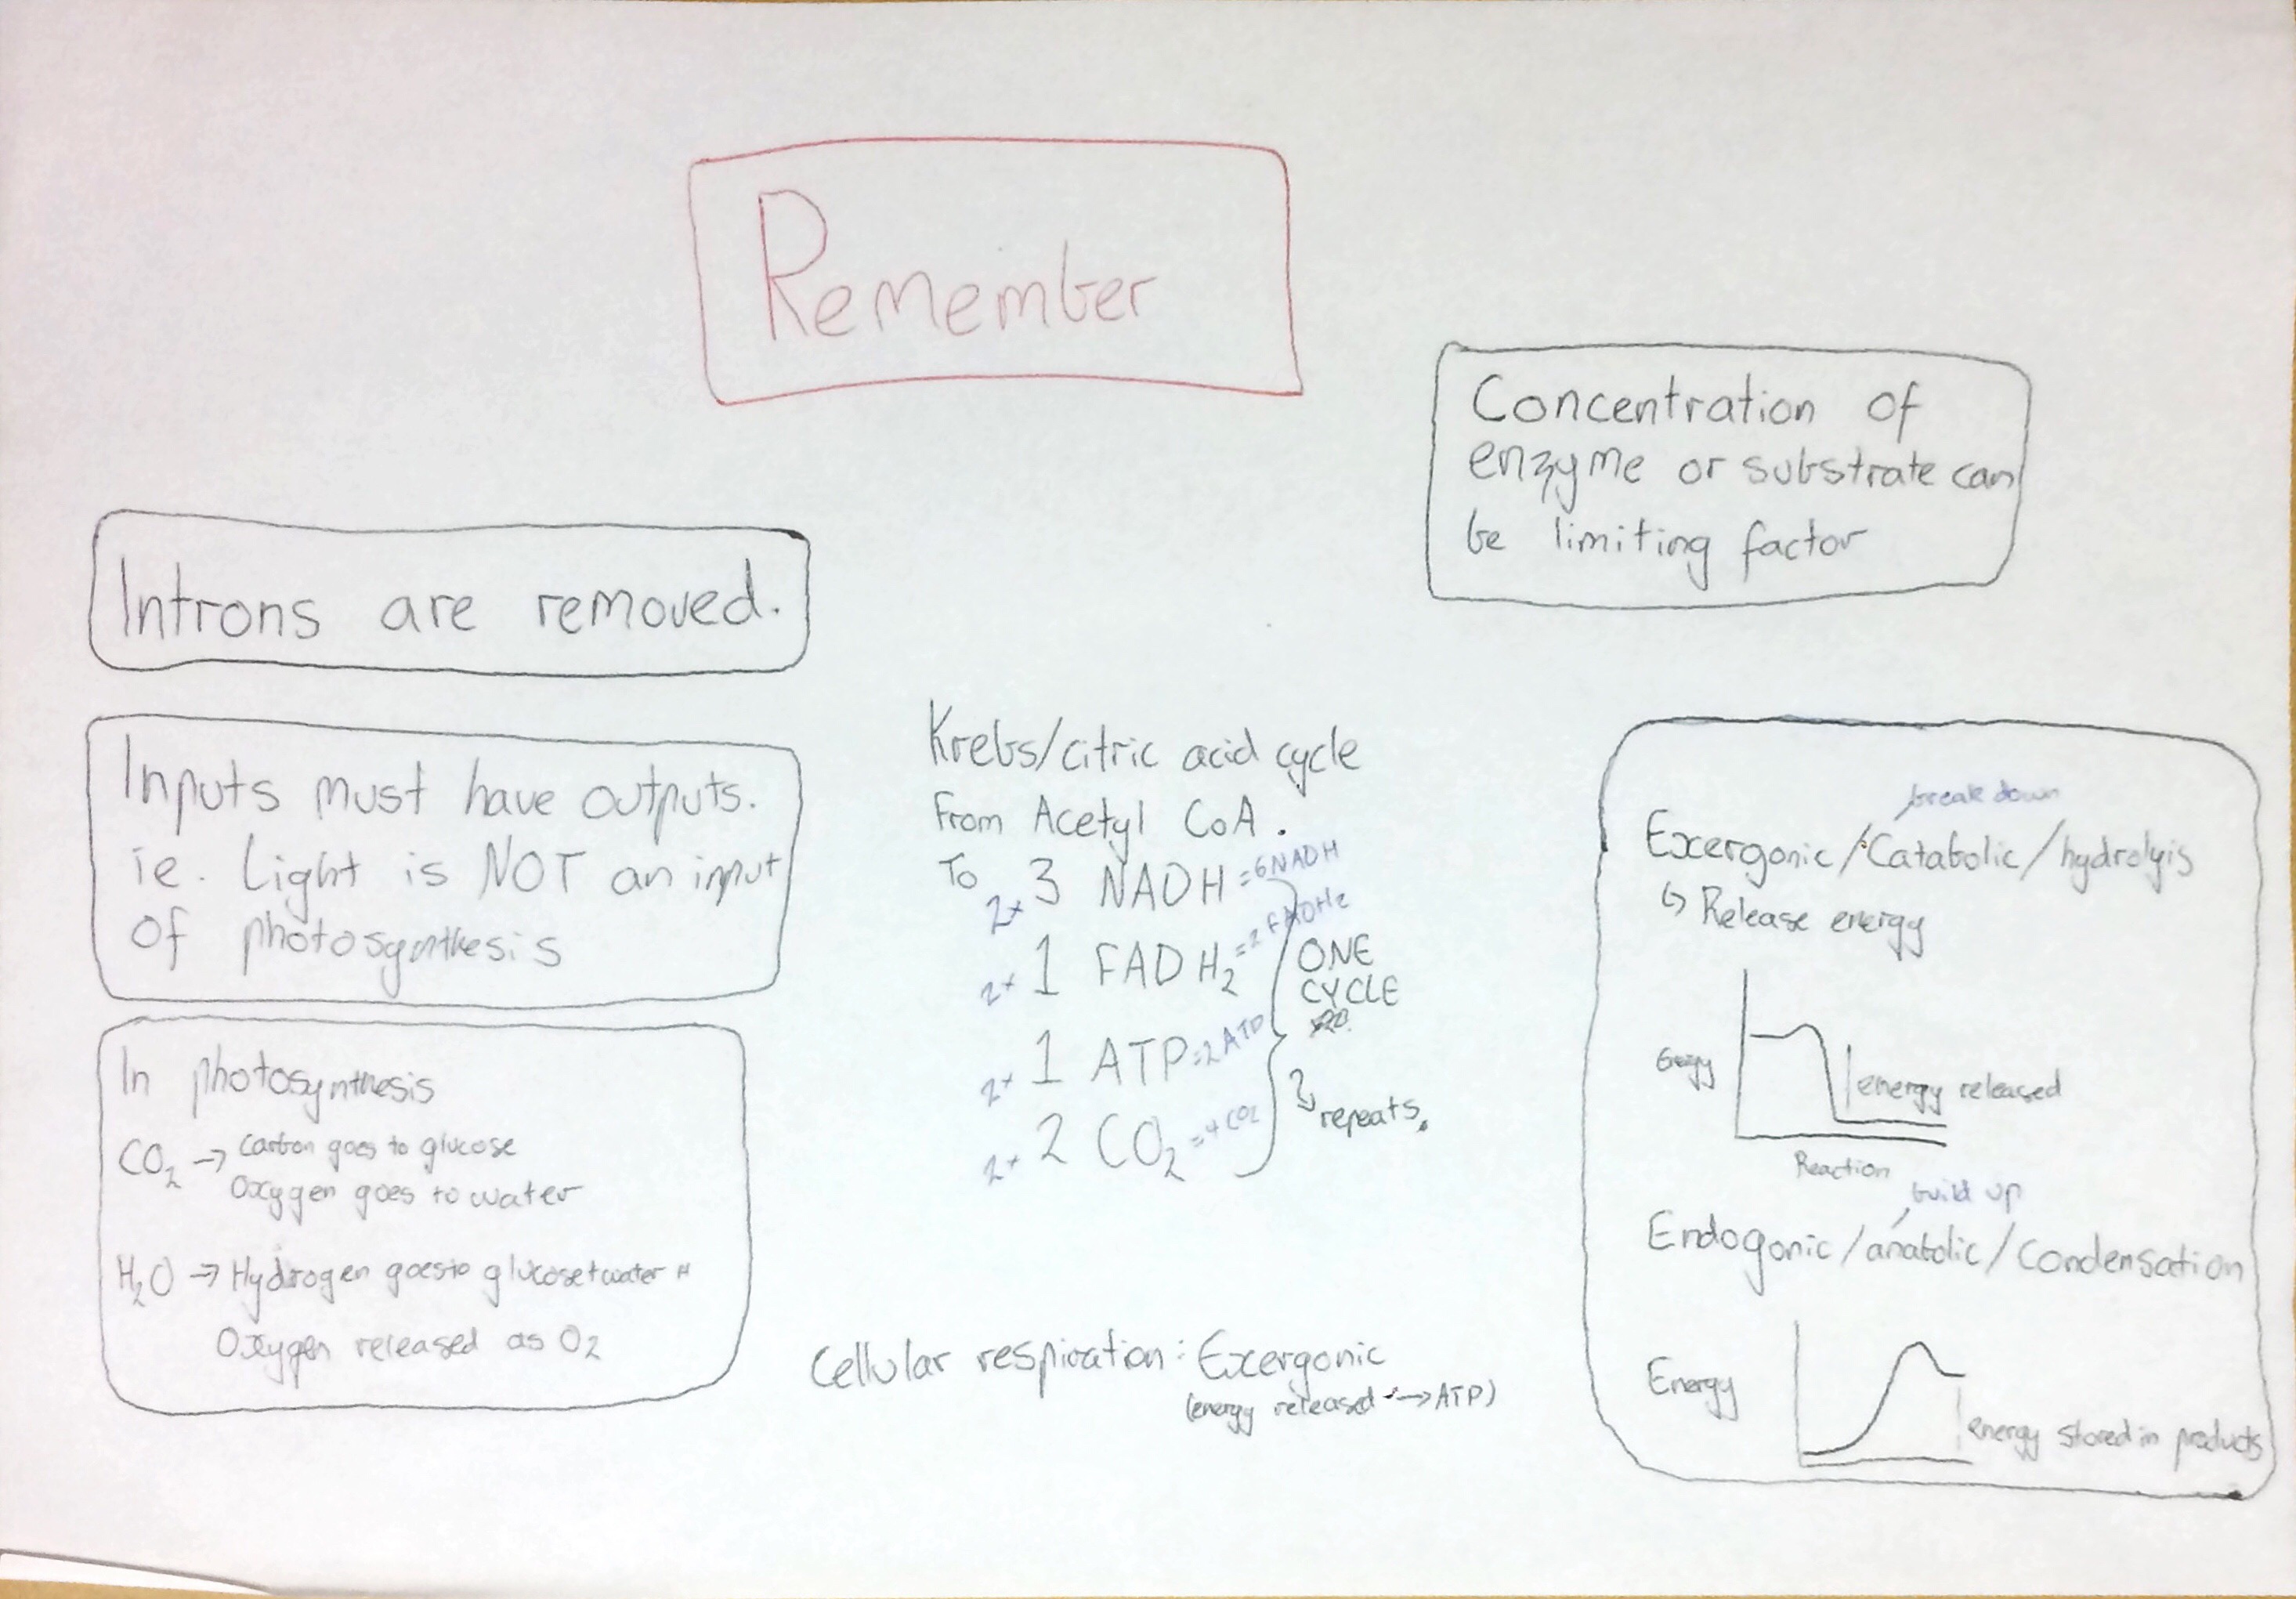 Remember
Concentration of
enzyme or substrate can
be limiting factor
Introns are removed.
Inputs must have outputs.
ie. Light is NOT an input
of photosynthesis
In photosynthesis
CO2 → Carbon goes to glucose
Oxygen goes to water
H2O → Hydrogen goes to glucose + water H
Oxygen released as O2
Krebs/citric acid cycle
From Acetyl CoA.
To
2x 3 NADH = 6 NADH
2x 1 FADH2 = 2 FADH2
2x 1 ATP = 2 ATP
2x 2 CO2 = 4 CO2
ONE
CYCLE
repeats.
Cellular respiration: Excergonic
(energy released → ATP)
break down
Excergonic / Catabolic / hydrolyis
↳ Release energy
Energy
energy released
Reaction
build up
Endogonic / anabolic / Condensation
Energy
energy stored in products